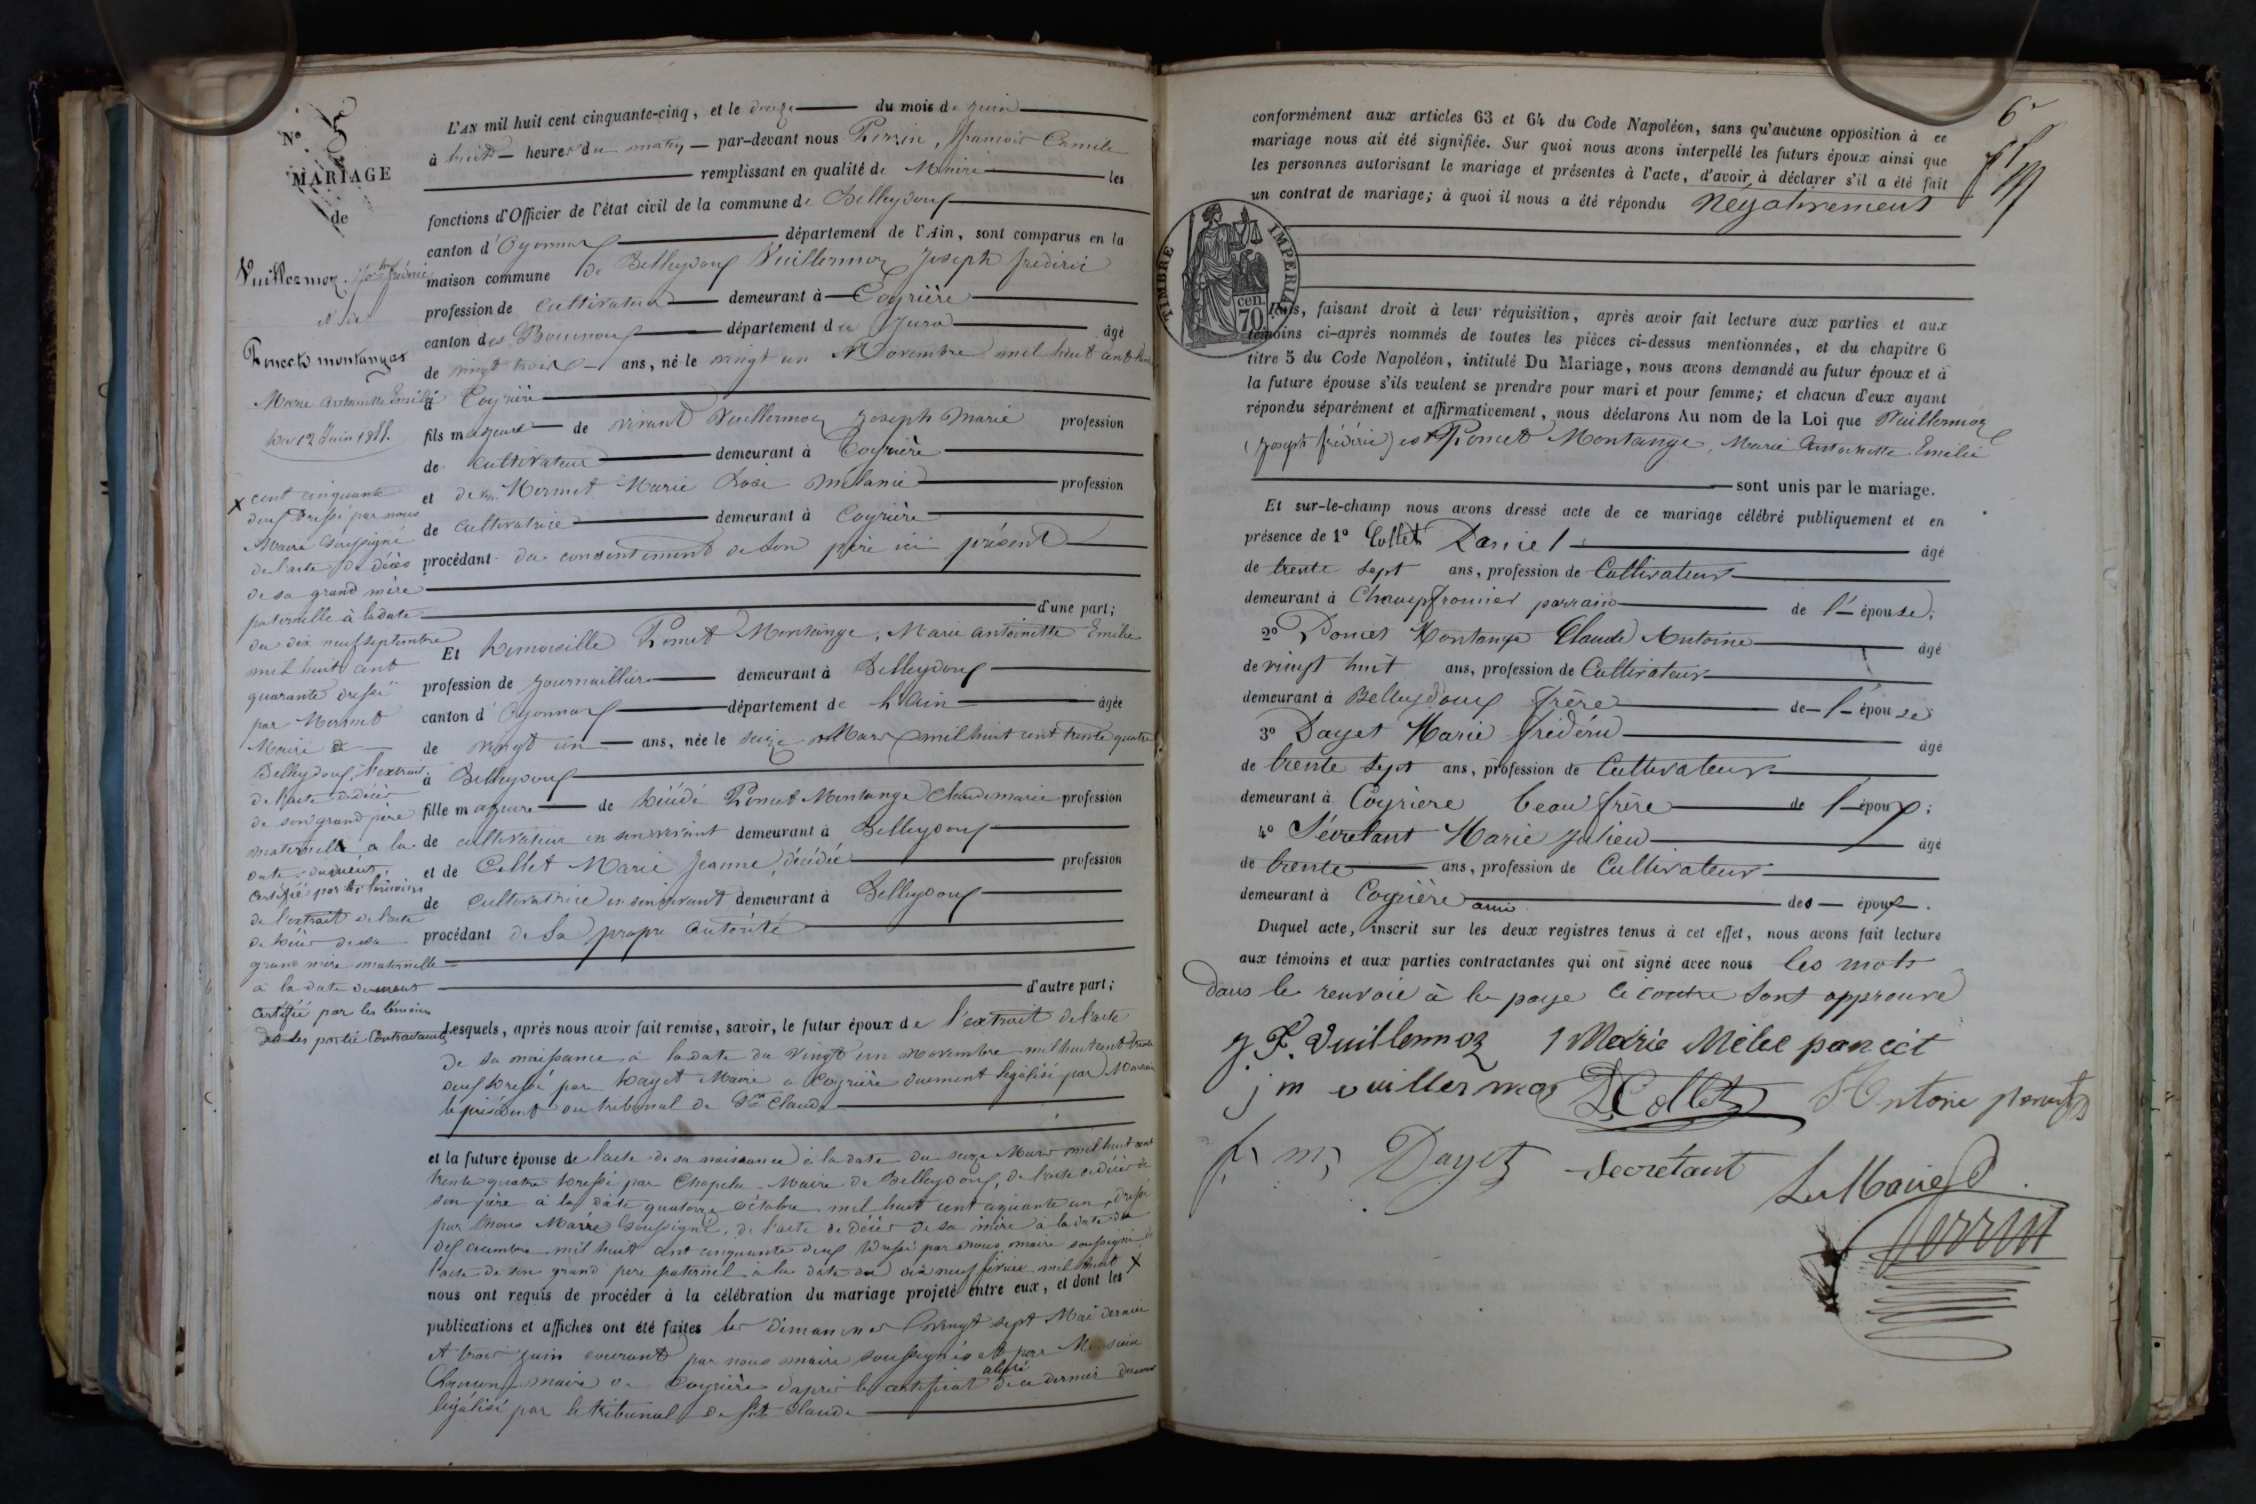 N° 5
MARIAGE
de
Vuillermoz Jph frédéric
et de
Poncet montange
Marie Antoinette Emélie
du 12 Juin 1855.
L'AN mil huit cent cinquante-cinq, et le douze du mois de juin
à huit heures du matin par-devant nous Perrin, françois Camile
remplissant en qualité de Maire les
fonctions d'Officier de l'état civil de la commune de Belleydoux
canton d'Oyonnax département de l'Ain, sont comparus en la
maison commune de Belleydoux Vuillermoz Joseph frédéric
profession de cultivateur demeurant à Coyrière
canton des Bouchoux département du Jura âgé
de vingt trois ans, né le vingt un Novembre mil huit cent
à Coyrière
fils majeur de vivant Vuillermoz Joseph Marie profession
de cultivateur demeurant à Coyrière
et de Mermet Marie Rose mélanie profession
de cultivatrice demeurant à Coyrière
procédant du consentement de son père ici présent
d'une part;
Et Demoiselle Poncet Montange, Marie antoinette Emélie
profession de journaillière demeurant à Belleydoux
canton d'Oyonnax département de L'Ain âgée
de vingt un ans, née le seize Mars mil huit cent trente quatre
à Belleydoux
fille majeure de Décédé Poncet Montange Claude marie profession
de cultivateur en son vivant demeurant à Belleydoux
et de Collet Marie Jeanne, décédée profession
de cultivatrice en son vivant demeurant à Belleydoux
procédant de sa propre autorité
d'autre part;
Lesquels, après nous avoir fait remise, savoir, le futur époux de l'extrait de l'acte
de sa naissance à la date du vingt un Novembre mil huit cent trente
deux Dressé par Dayet Maire a Coyrière duement légalisé par Monsieur
le président du tribunal de St Claude
et la future épouse de l'acte de sa naissance à la date du seize Mars mil huit cent
trente quatre Dressé par Chapelu Maire de Belleydoux, de l'acte de décès de
son père à la date quatorze octobre mil huit cent cinquante un, dressé
par Nous Maire soussigné, de l'acte de décès de sa mère à la date du
dix décembre mil huit cent cinquante deux Dressé par nous maire soussigné de
l'acte de son grand pere paternel à la date du dix neuf février mil huit X
nous ont requis de procéder à la célébration du mariage projeté entre eux, et dont les
publications et affiches ont été faites les dimanches vingt sept Mai dernier
et trois juin courant par nous maire soussigné et par Monsieur
maire de Coyrière d'après le certificat de ce dernier
légalisé par le tribunal de St Claude
X cent cinquante
deux Dressé par nous
Maire soussigné
de l'acte de décès
de sa grand mère
paternelle à la date
du dix neuf septembre
mil huit cent
quarante dressé
par Mermet
Maire de
Belleydoux, l'extrait
de l'acte de décès
de son grand père
maternelle a la
date
certifiée par les témoins
de l'extrait de l'acte
de Décès de sa
grand mère maternelle
à la date
certifiée par les témoins
des partie Contractants
6e
conformément aux articles 63 et 64 du Code Napoléon, sans qu'aucune opposition à ce
mariage nous ait été signifiée. Sur quoi nous avons interpellé les futurs époux ainsi que
les personnes autorisant le mariage et présentes à l'acte, d'avoir à déclarer s'il a été fait
un contrat de mariage; à quoi il nous a été répondu Négativement
TIMBRE IMPERIAL
70 cen.
Puis, faisant droit à leur réquisition, après avoir fait lecture aux parties et aux
témoins ci-après nommés de toutes les pièces ci-dessus mentionnées, et du chapitre 6
titre 5 du Code Napoléon, intitulé Du Mariage, nous avons demandé au futur époux et à
la future épouse s'ils veulent se prendre pour mari et pour femme; et chacun d'eux ayant
répondu séparément et affirmativement, nous déclarons Au nom de la Loi que Vuillermoz
(Joseph frédéric) et Poncet Montange, Marie Antoinette Emélie
sont unis par le mariage.
Et sur-le-champ nous avons dressé acte de ce mariage célébré publiquement et en
présence de 1° Collet Daniel âgé
de trente sept ans, profession de Cultivateur
demeurant à Champfromier parrain de l'épouse;
2° Poncet Montange Claude Antoine âgé
de vingt huit ans, profession de Cultivateur
demeurant à Belleydoux frère de l'épouse
3° Dayet Marie frédéric âgé
de trente sept ans, profession de Cultivateur
demeurant à Coyriere beau frère de l'époux;
4° Sécretant Marie Julien âgé
de trente ans, profession de Cultivateur
demeurant à Coyrière ami des époux.
Duquel acte, inscrit sur les deux registres tenus à cet effet, nous avons fait lecture
aux témoins et aux parties contractantes qui ont signé avec nous les mots
dans le renvoie à la page ci contre sont approuvé
J F. Vuillermoz Marie Mélie poncet
j m vuillermoz D Collet Antoine poncet
f m Dayet Secretant
Le Maire
Perrin